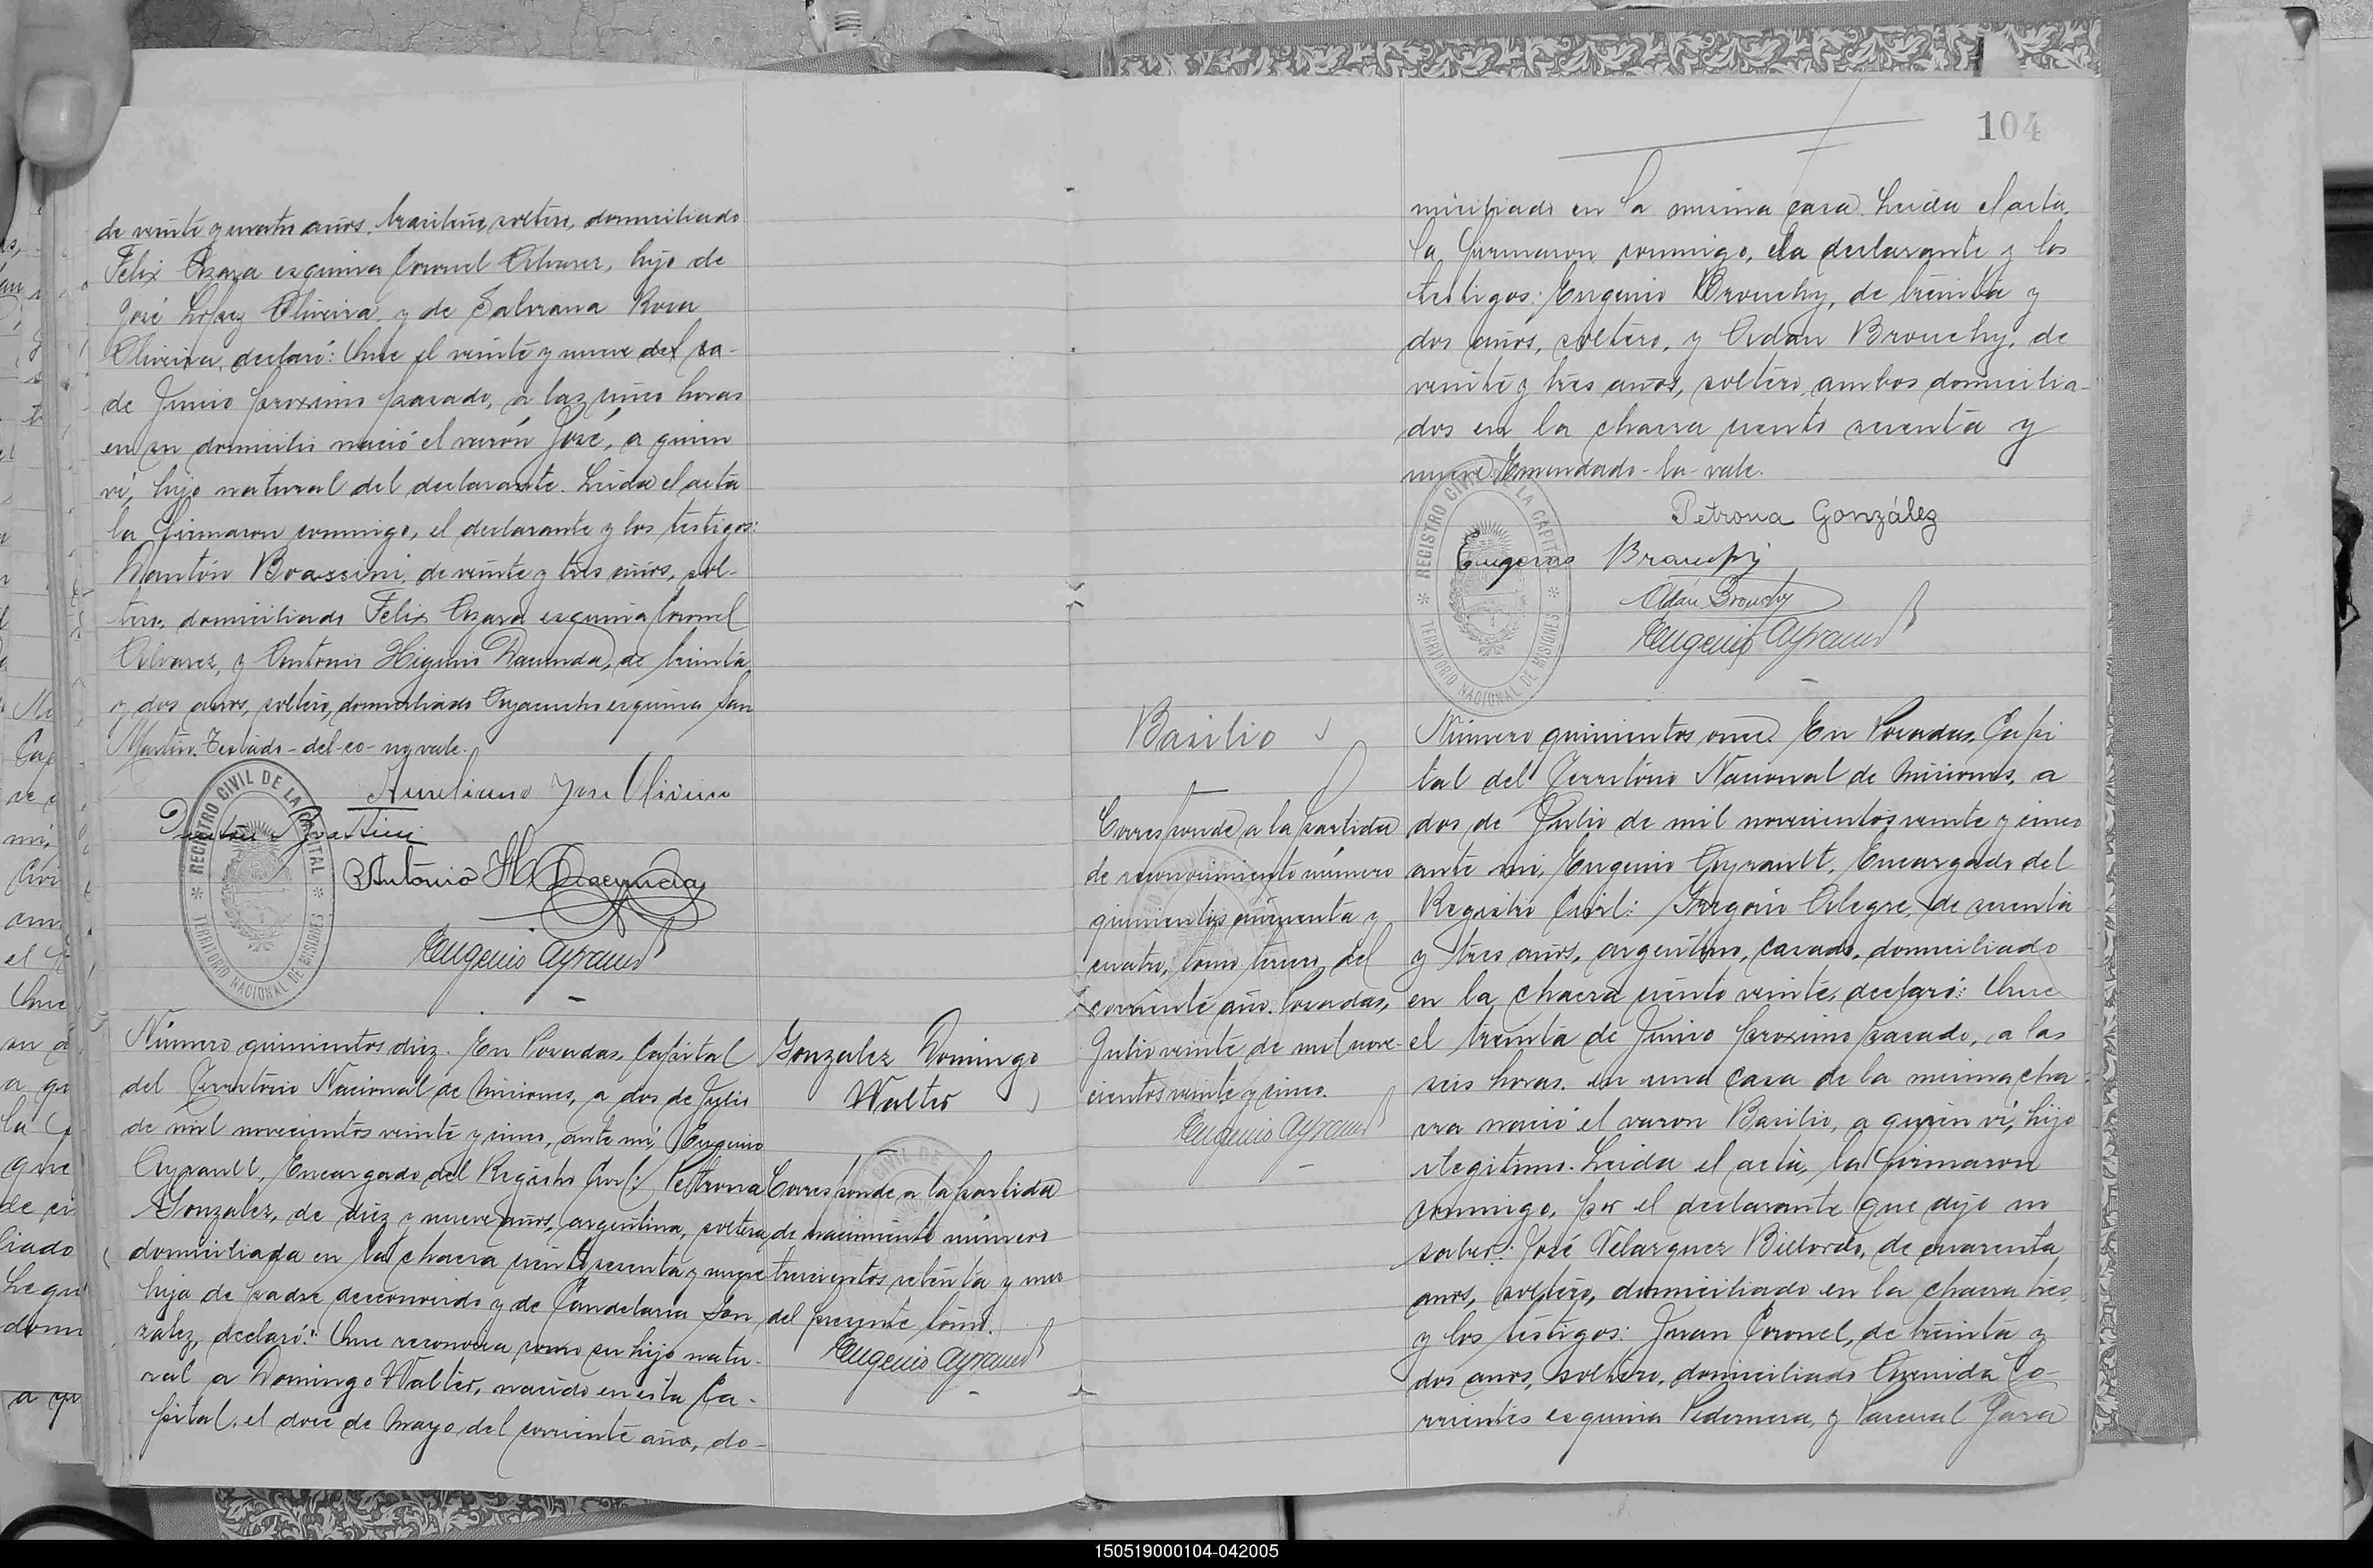 de veinte y cuatro años, brasilero, soltero, domiciliado
Felix Azara esquina Coronel Alvarez, hijo de
José López Oliveira y de Salvrana Rosa
Oliveira, declaró: Que el veinte y nueve del co-
de Junio proximo pasado, a las cinco horas
en su domicilio nació el varón José, a quien
ví, hijo natural del declarante. Leida el acta
la firmaron conmigo, el declarante y los testigos:
Dantón Brassini, de veinte y tres años, sol-
tero, domiciliado Felix Azara esquina Coronel
Alvarez, y Antonio Higinio Dacunda, de treinta
y dos años, soltero, domiciliado Ayacucho esquina San
Martin. Testado-del-co-no vale.
Aureliano José Oliveira
Antonio H. Dacunda
Eugenio Ayrault
REGISTRO CIVIL DE LA CAPITAL
TERRITORIO NACIONAL DE MISIONES
Número quinientos diez. En Posadas, Capital
del Territorio Nacional de Misiones, a dos de Julio
de mil novecientos veinte y cinco, ante mí, Eugenio
Ayrault, Encargado del Registro Civil: Petrona
Gonzalez, de diez y nueve años, argentina, soltera,
domiciliada en la chacra ciento sesenta y nueve
hija de padre desconocido y de Candelaria Gon
zalez, declaró: Que reconocia como su hijo natu-
ral a Domingo Walter, nacido en esta Ca-
pital, el doce de Mayo del corriente año, do-
Gonzalez Domingo
Walter
Corresponde a la partida
de nacimiento número
trescientos setenta y uno
del presente tomo.
Eugenio Ayrault
104
miciliado en la misma casa. Leida el acta,
la firmaron conmigo, la declarante y los
testigos: Eugenio Brouchy, de treinta y
dos años, soltero, y Adan Brouchy, de
veinte y tres años, soltero, ambos domicilia-
dos en la chacra ciento sesenta y
nueve. Enmendado-la-vale.
Petrona González
Eugenio Brouchy
Adán Brouchy
Eugenio Ayrault
REGISTRO CIVIL DE LA CAPITAL
TERRITORIO NACIONAL DE MISIONES
Basilio
Corresponde a la partida
de reconocimiento número
quinientos cincuenta y
cuatro, tomo tercero del
corriente año. Posadas,
Julio veinte de mil nove-
cientos veinte y cinco.
Eugenio Ayrault
Número quinientos once. En Posadas, Capi
tal del Territorio Nacional de Misiones, a
dos de Julio de mil novecientos veinte y cinco
ante mí, Eugenio Ayrault, Encargado del
Registro Civil: Gregorio Alegre, de sesenta
y tres años, argentino, casado, domiciliado
en la chacra ciento veinte, declaró: Que
el treinta de Junio proximo pasado, a las
seis horas, en una casa de la misma cha
cra nació el varon Basilio, a quien ví, hijo
ilegitimo. Leida el acta, la firmaron
conmigo, por el declarante que dijo no
saber: José Velazquez Billordo, de cuarenta
años, soltero, domiciliado en la chacra tres,
y los testigos: Juan Coronel, de treinta y
dos años, soltero, domiciliado Avenida Co-
rrientes esquina Pedernera, y Pascual Jara
150519000104-042005